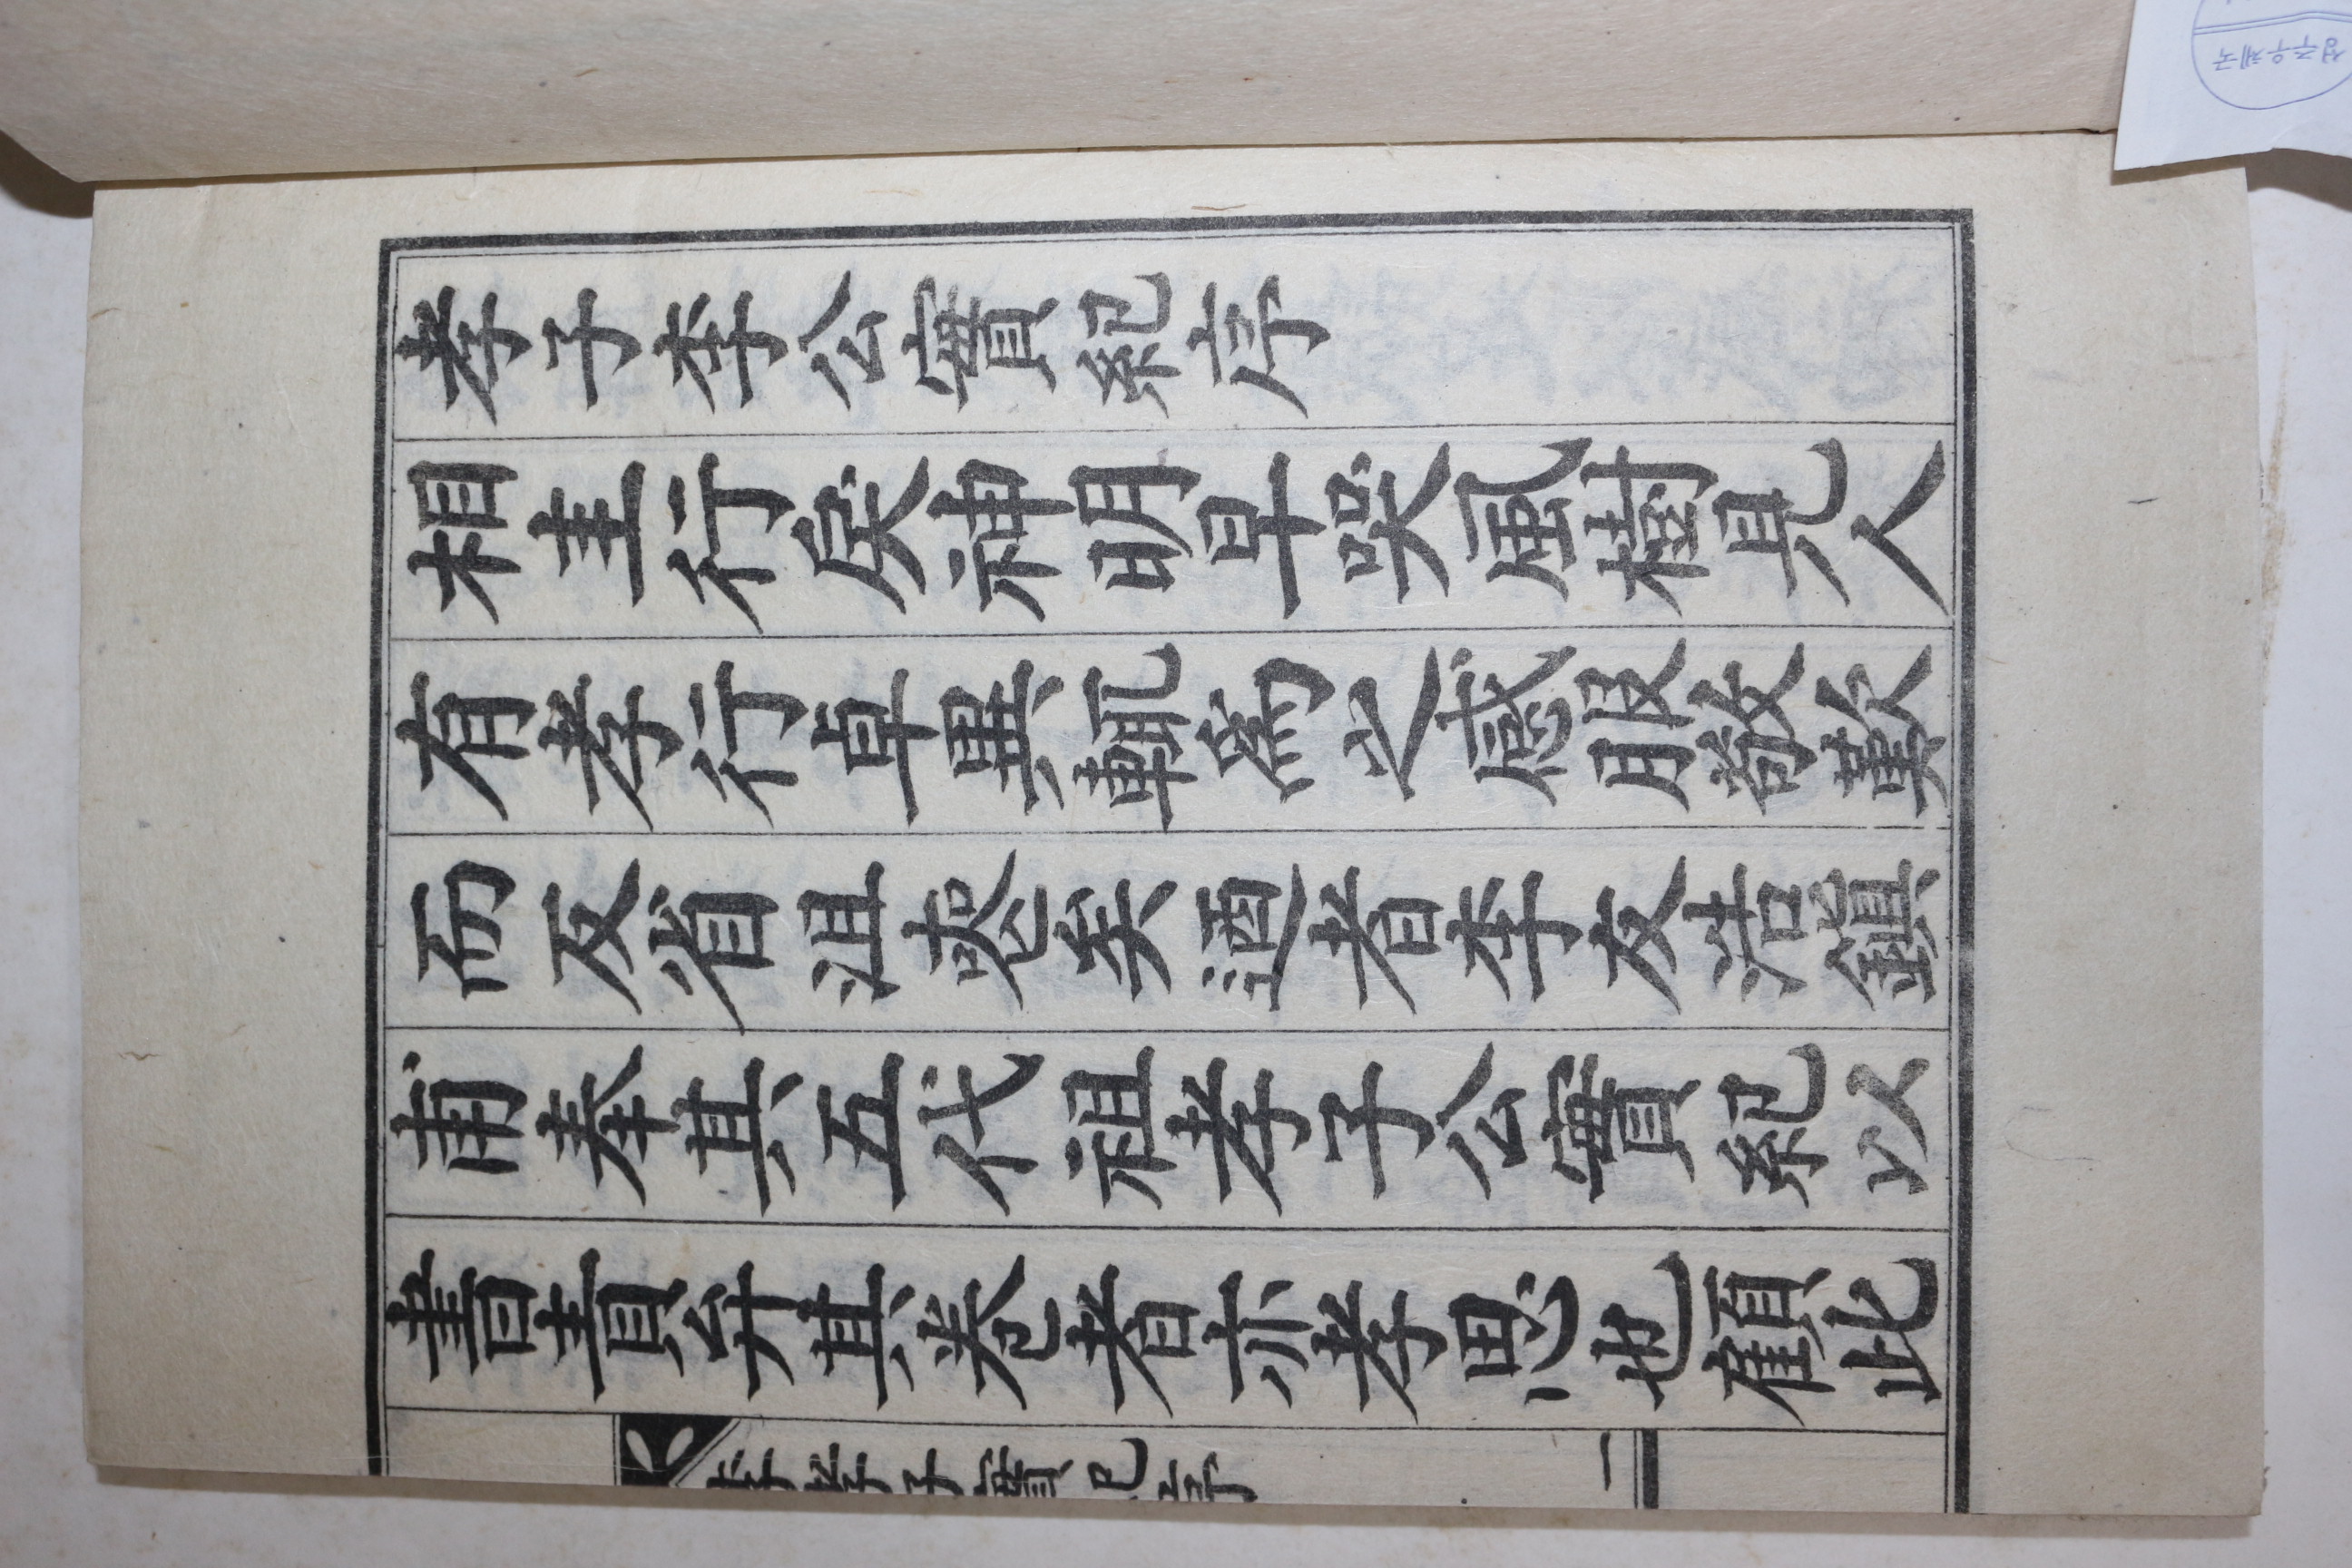 孝子李公實紀序
相圭行戾神明早哭風樹見人
有孝行卓異輒爲之感服敬歎
而反省沮喪矣迺者李友浩鎭
甫奉其五代祖孝子公實紀以
書責弁其卷者亦孝思也顧此
李孝子實紀序 一
성주우체국